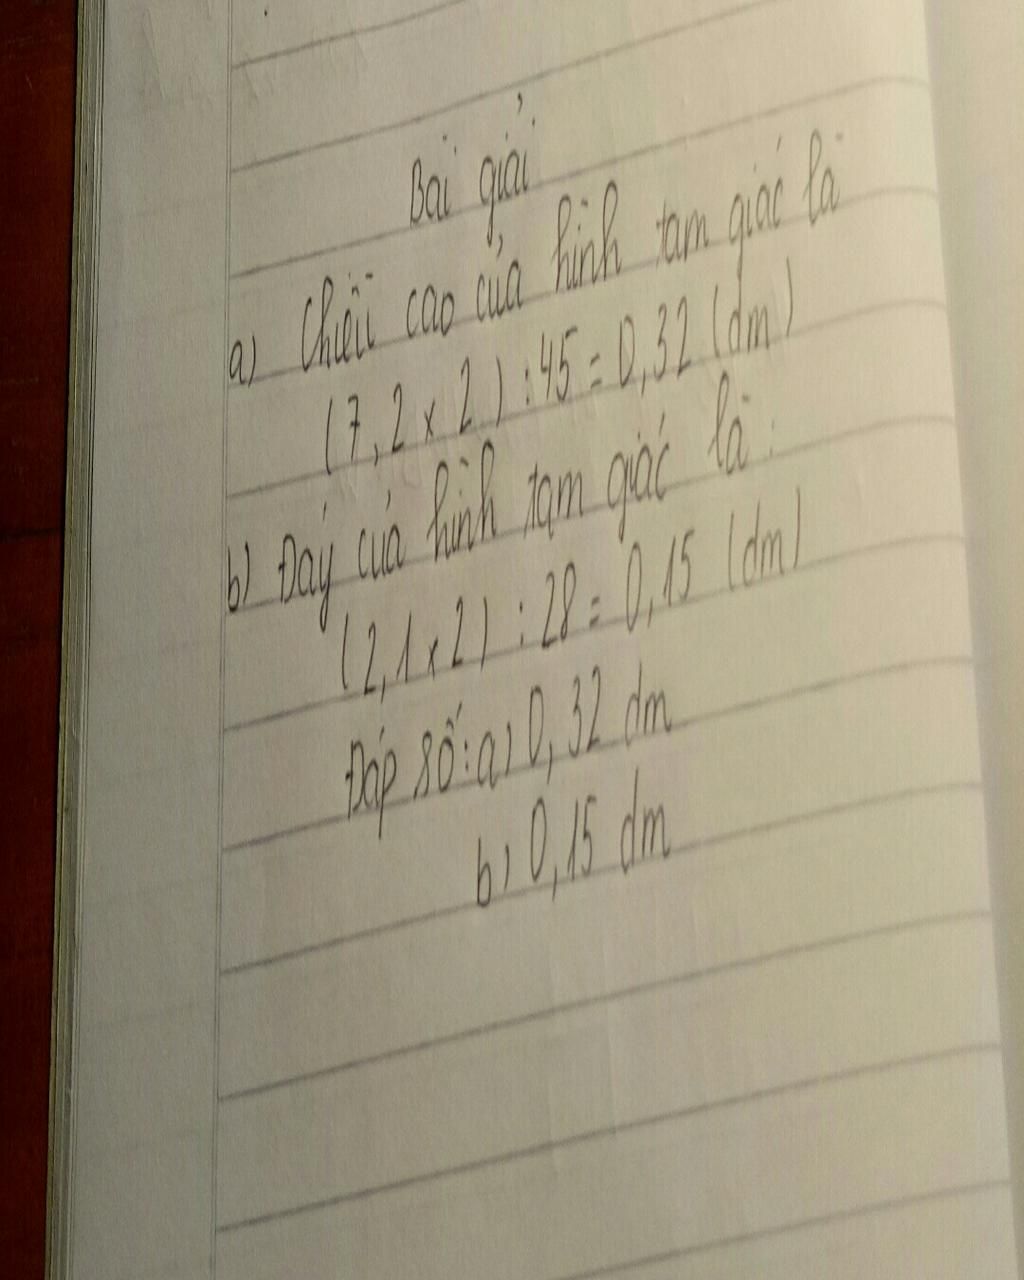 Bài giải
a) Chiều cao của hình tam giác là
(7,2 x 2) : 45 = 0,32 (dm)
b) Đáy của hình tam giác là :
(2,1 x 2) : 28 = 0,15 (dm)
Đáp số: a) 0,32 dm
b) 0,15 dm